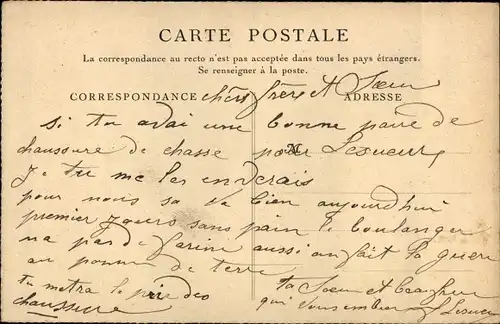 CARTE POSTALE
La correspondance au recto n'est pas acceptée dans tous les pays étrangers.
Se renseigner à la poste.
CORRESPONDANCE
ADRESSE
chers frère et Sœur
si tu avai une bonne paire de
chaussure de chasse pour Lesueur
M
tu me les enverais
pour nous sa va bien aujourdhui
premier jours sans pain le boulanger
na pas de farine aussi on fait la guere
au pomme de terre
tu metra le prix des
chaussure
ta Soeur et Beaufrere
qui vous embrasse Lesueur